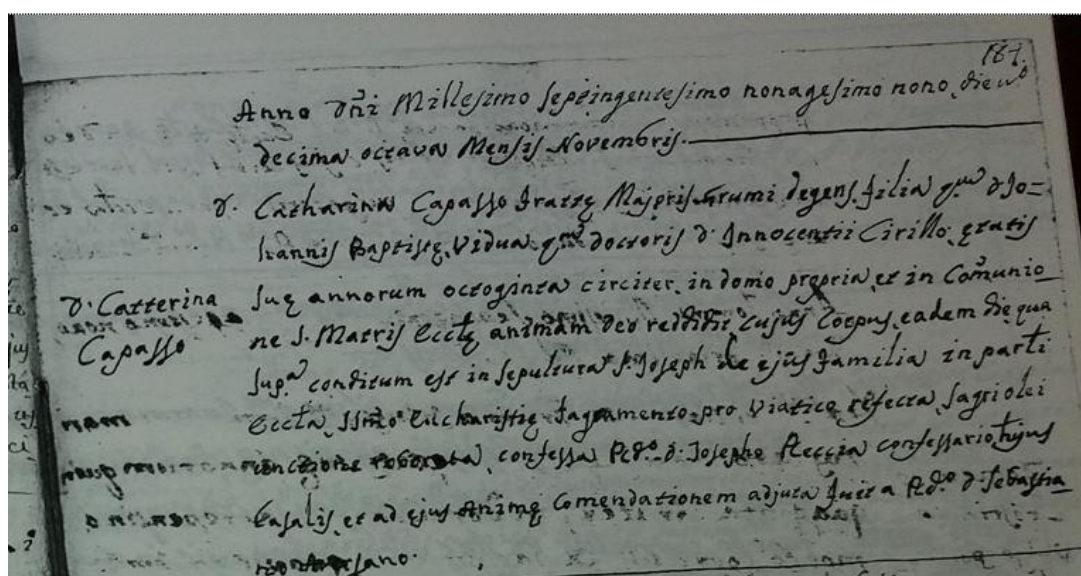 187.
Anno Dñi Millesimo septingentesimo nonagesimo nono, die vº
decima octava Mensis Novembris.
D. Catharina Capasso Fratte Majoris Grumi degens, filia qm D. Jo=
hannis Baptistę, Vidua qm doctoris D. Innocentii Cirillo, ętatis
D. Catterina
Capasso
suę annorum octoginta circiter, in domo propria, et in Comũnio
ne S. Matris Ecclę animam Deo reddidit, cujus Corpus, eadem die qua
supª conditum est in sepultura S. Joseph de ejus familia in parli
Eccla, SSmo Eucharistię Sagramento pro Viatico refecta, sagri olei
unctione roborata, confessa Rdº D. Josepho Reccia confessario hujus
Casalis, et ad ejus Animę Comendationem adjuta fuit a Rdº D. Sebastia
no